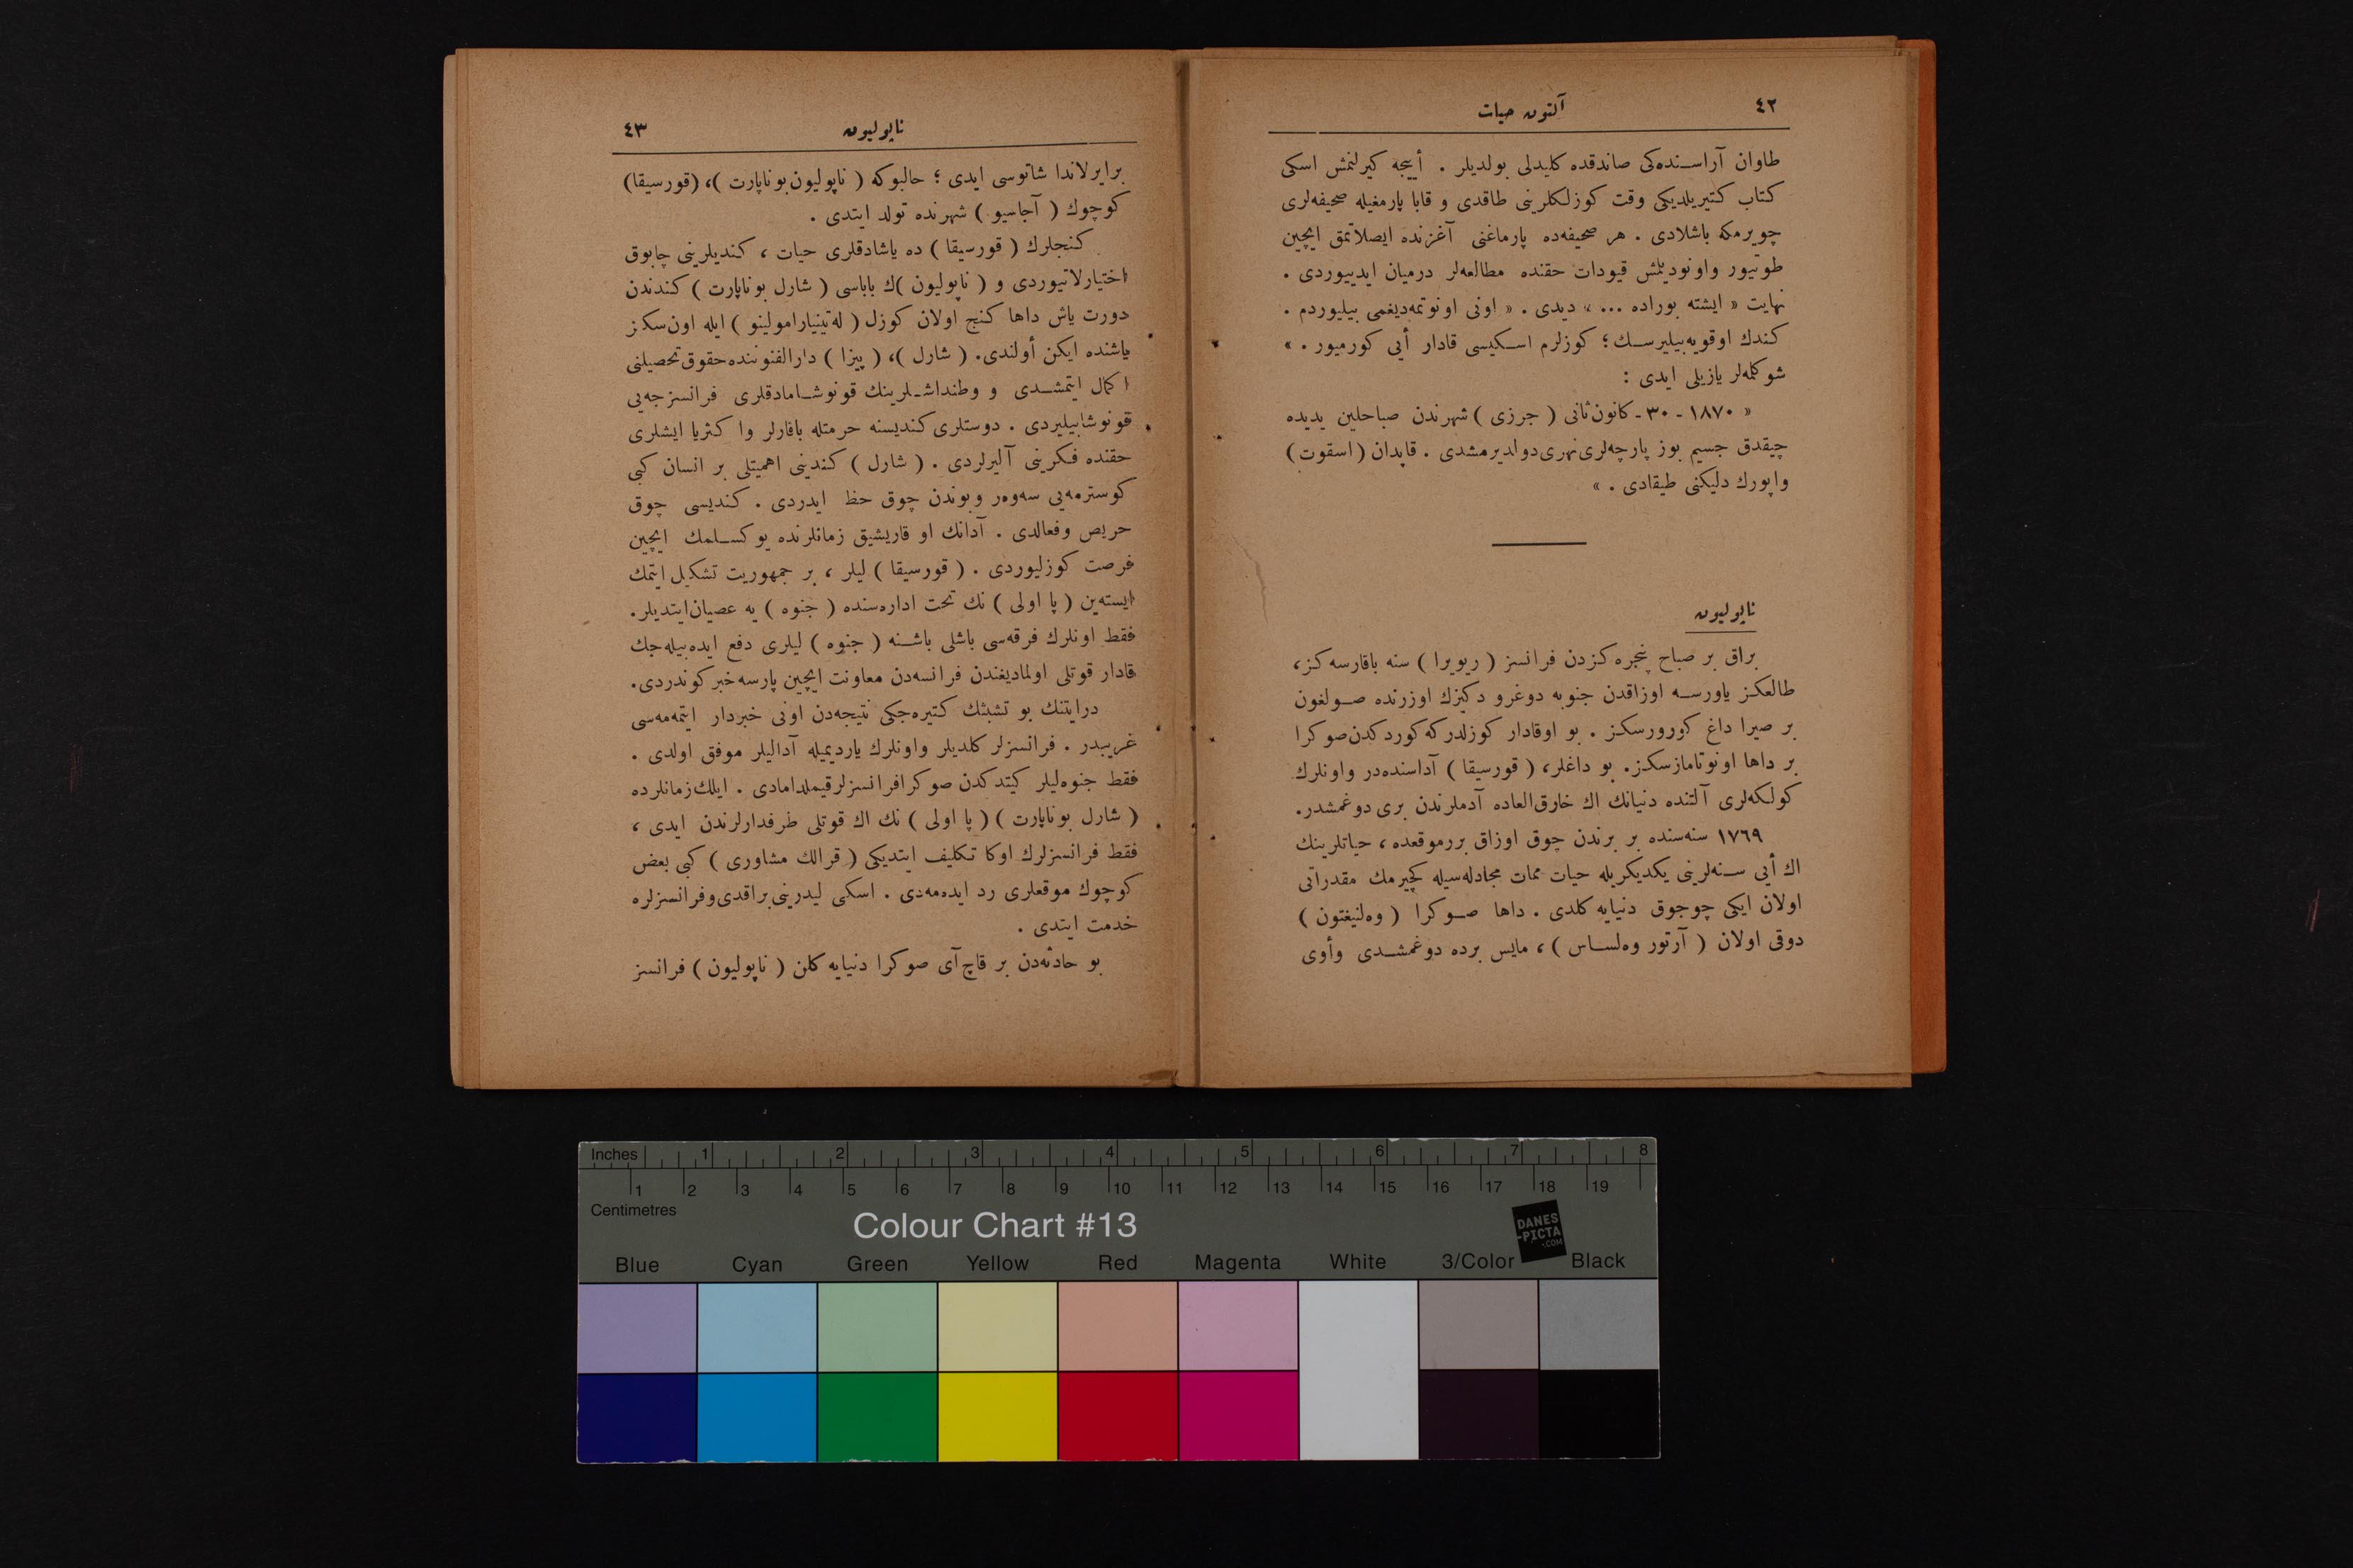 ٤٢
آلتون حیات
طاوان آراسنده‌کی صاندقده کلیدلی بولدیلر . أییجه کیرلنمش اسکی
کتاب کتیریلدیکی وقت کوزلکلرینی طاقدی و قابا پارمغیله صحیفه‌لری
چویرمکه باشلادی . هر صحیفه‌ده پارماغنی آغزنده ایصلاتمق ایچین
طوتیور واونودیلمش قیودات حقنده مطالعه‌لر درمیان ایدییوردی .
نهایت « ایشته بوراده ... » دیدی . « اونی اونوتمه‌دیغمی بیلیوردم .
کندك اوقویه‌بیلیرسك ؛ کوزلرم اسکیسی قادار أیی کورمیور . »
شوکلمه‌لر یازیلی ایدی :
« ١٨٧٠ - ٣٠ - کانون‌ثانی ( جرزی ) شهرندن صباحلین یدیده
چیقدق جسیم بوز پارچه‌لری‌نهری‌دولدیرمشدی . قاپدان ( اسقوت )
واپورك دلیکنی طیقادی . »
ناپولیون
براق بر صباح پنجره‌کزدن فرانسز ( ریویرا ) سنه باقارسه‌کز،
طالعکز یاورسه اوزاقدن جنوبه دوغرو دکیزك اوزرنده صولغون
بر صیرا داغ کورورسکز . بو اوقادار کوزلدرکه کوردکدن صوکرا
بر داها اونوتامازسکز. بو داغلر، ( قورسیقا ) آداسنده‌در واونلرك
کولکه‌لری آلتنده دنیانك اك خارق‌العاده آدملرندن بری دوغمشدر.
١٧٦٩ سنه‌سنده بر برندن چوق اوزاق بررموقعده ، حیاتلرینك
اك أیی سنه‌لرینی یکدیکریله حیات ممات مجادله‌سیله کچیرمك مقدراتی
اولان ایکی چوجوق دنیایه کلدی . داها صوکرا ( وه‌لنیغتون )
دوقی اولان ( آرتور وه‌لساس ) ، مایس برده دوغمشدی وأوی
٤٣
ناپولیون
برایرلاندا شاتوسی ایدی ؛ حالبوکه ( ناپولیون‌بوناپارت )، (قورسیقا)
کوچوك ( آجاسیو ) شهرنده تولد ایتدی .
کنجلرك ( قورسیقا ) ده یاشادقلری حیات ، کندیلرینی چابوق
اختیارلاتیوردی و ( ناپولیون )ك باباسی ( شارل بوناپارت ) کندندن
دورت یاش داها کنج اولان کوزل ( له‌تیتیارامولینو ) ایله اون‌سکز
یاشنده ایکن أولندی. ( شارل )، ( پیزا ) دارالفنوننده‌حقوق‌تحصیلنی
اکمال ایتمشدی و وطنداشلرینك قونوشامادقلری فرانسزجه‌یی
قونوشابیلیردی . دوستلری کندیسنه حرمتله باقارلر وا کثریا ایشلری
حقنده فکرینی آلیرلردی . ( شارل ) کندینی اهمیتلی بر انسان کبی
کوسترمه‌یی سه‌وه‌ر وبوندن چوق حظ ایدردی . کندیسی چوق
حریص وفعالدی . آدانك او قاریشیق زمانلرنده یوکسلمك ایچین
فرصت کوزلیوردی . ( قورسیقا ) لیلر ، بر جمهوریت تشکیل ایتمك
ایسته‌ین ( پا اولی ) نك تحت اداره‌سنده ( جنوه ) یه عصیان‌ایتدیلر.
فقط اونلرك فرقه‌سی باشلی باشنه ( جنوه ) لیلری دفع ایده‌بیله‌جك
قادار قوتلی اولمادیغندن فرانسه‌دن معاونت ایچین پارسه‌خبر کوندردی.
درایتنك بو تشبثك کتیره‌جکی نتیجه‌دن اونی خبردار ایتمه‌مه‌سی
غریبدر . فرانسزلر کلدیلر واونلرك یاردیمیله آدالیلر موفق اولدی .
فقط جنوه‌لیلر کیتدکدن صوکرافرانسزلرقیملدامادی . ایلك‌زمانلرده
( شارل بوناپارت ) ( پا اولی ) نك اك قوتلی طرفدارلرندن ایدی ،
فقط فرانسزلرك اوکا تکلیف ایتدیکی ( قرالك مشاوری ) کبی بعض
کوچوك موقعلری رد ایده‌مه‌دی . اسکی لیدرینی‌براقدی‌وفرانسزلره
خدمت ایتدی .
بو حادثه‌دن بر قاچ‌آی صوکرا دنیایه کلن ( ناپولیون ) فرانسز
Inches 1 2 3 4 5 6 7 8
1 2 3 4 5 6 7 8 9 10 11 12 13 14 15 16 17 18 19
Centimetres
Colour Chart #13
DANES
-PICTA
.COM
Blue Cyan Green Yellow Red Magenta White 3/Color Black